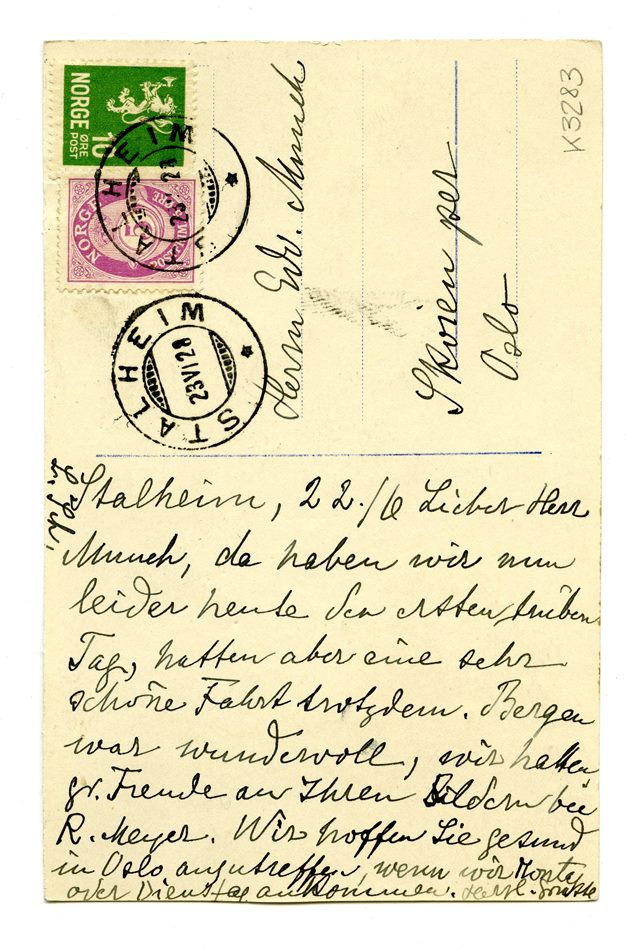 K3283
NORGE
10
ØRE
POST
NORGE
STALHEIM
23 VI 28
STALHEIM
23 VI 28
Herrn Edv. Munch
Skøien per
Oslo
Stalheim, 22./6 Lieber Herr
Munch, da haben wir nun
leider heute den ersten trüben
Tag, hatten aber eine sehr
schöne Fahrt trotzdem. Bergen
war wundervoll, wir hatten
gr. Freude an Ihren Bildern bei
R. Meyer. Wir hoffen Sie gesund
in Oslo anzutreffen, wenn wir Montg
oder Dienstag ankommen. Herzl. Grüsse